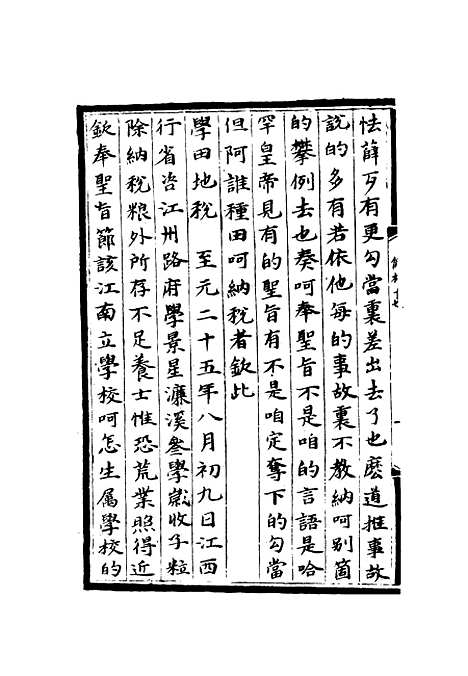 怯薛歹有更勾當裏差出去了也麽道推事故
說的多有若依他每的事故裏不教納呵别箇
的攀例去也奏呵奉聖旨不是咱的言語是哈
罕皇帝見有的聖旨有不是咱定奪下的勾當
但阿誰種田呵納稅者欽此
學田地稅　至元二十五年八月初九日江西
行省咨江州路府學景星濂溪叄學歲收子粒
除納稅粮外所存不足養士惟恐荒業照得近
欽奉聖旨節該江南立學校呵怎生属學校的